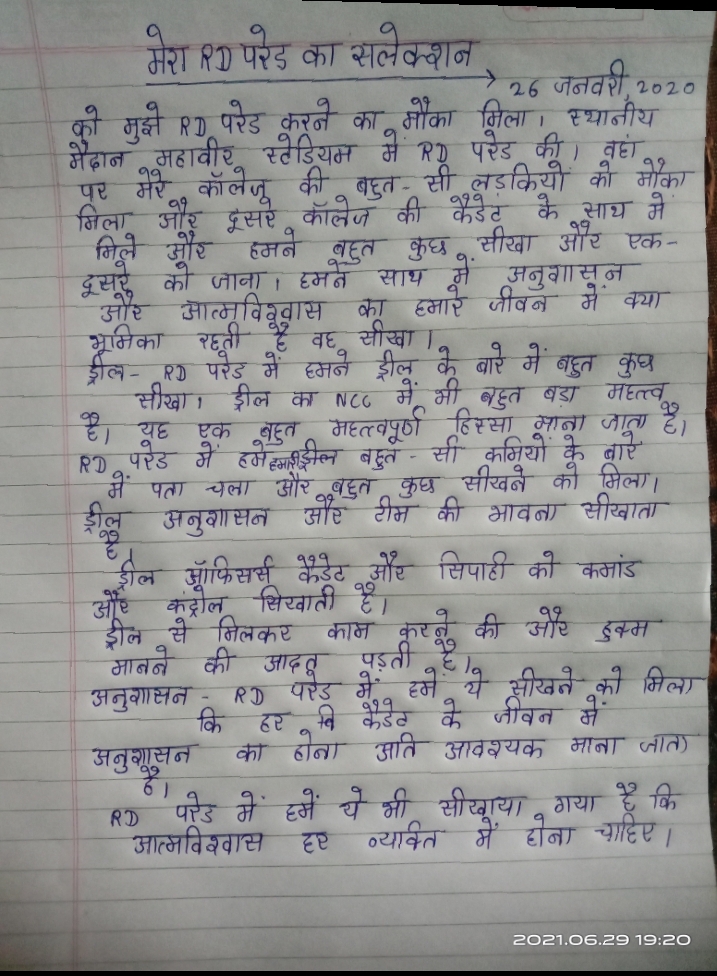 मेरा RD परेड का सलेक्शन
26 जनवरी, 2020
को मुझे RD परेड करने का मौका मिला। स्थानीय
मैदान महावीर स्टेडियम में RD परेड की। वहां
पर मेरे कॉलेज की बहुत-सी लड़कियों को मौका
मिला और दूसरे कॉलेज की कैडेट के साथ में
मिले और हमने बहुत कुछ सीखा और एक-
दूसरे को जाना। हमने साथ में अनुशासन
और आत्मविश्वास का हमारे जीवन में क्या
भूमिका रहती है वह सीखा।
ड्रील- RD परेड में हमने ड्रील के बारे में बहुत कुछ
सीखा। ड्रील का NCC में भी बहुत बड़ा महत्त्व
है। यह एक बहुत महत्त्वपूर्ण हिस्सा माना जाता है।
RD परेड में हमें हमारी ड्रील बहुत-सी कमियों के बारे
में पता चला और बहुत कुछ सीखने को मिला।
ड्रील अनुशासन और टीम की भावना सीखाता
है।
ड्रील ऑफिसर्स कैडेट और सिपाही को कमांड
और कंट्रोल सिखाती है।
ड्रील से मिलकर काम करने की और हुक्म
मानने की आदत पड़ती है।
अनुशासन - RD परेड में हमें ये सीखने को मिला
कि हर कैडेट के जीवन में
अनुशासन का होना अति आवश्यक माना जाता
है।
RD परेड में हमें ये भी सीखाया गया है कि
आत्मविश्वास हर व्यक्ति में होना चाहिए।
2021.06.29 19:20